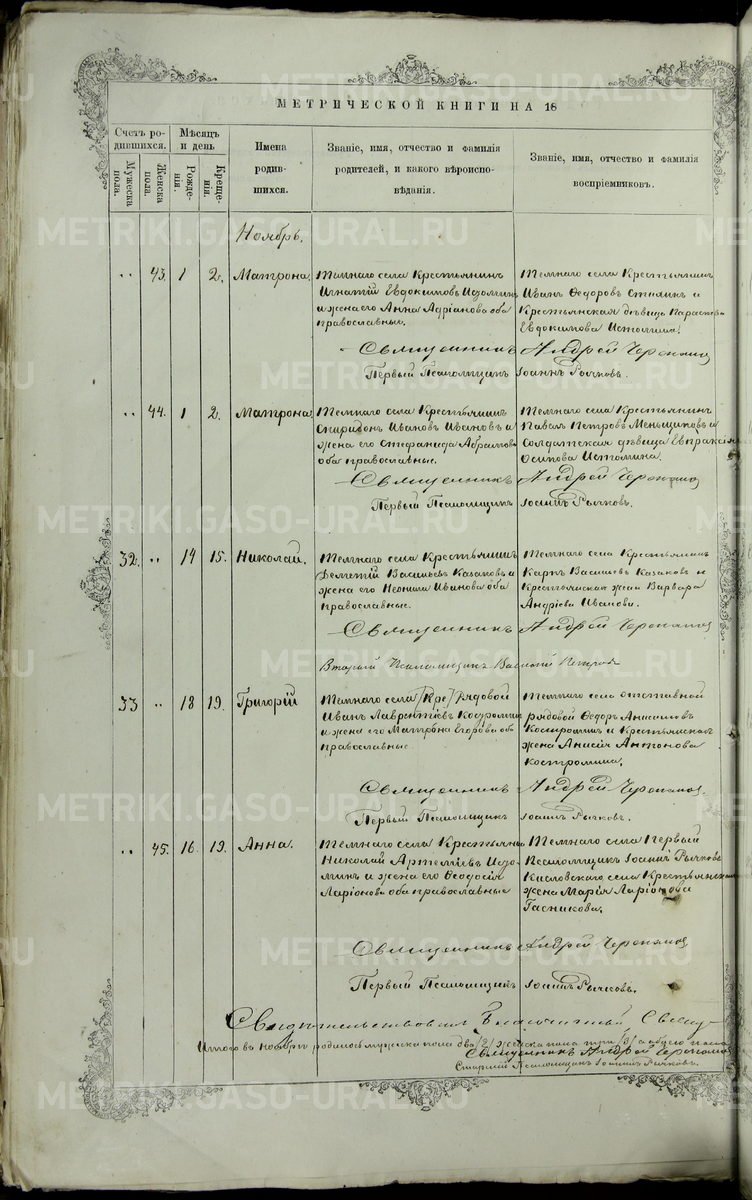 МЕТРИЧЕСКОЙ КНИГИ НА 18
Счетъ ро-
дившихся.
Мѣсяцъ
и день
Имена
родив-
шихся.
Званіе, имя, отчество и фамилія
родителей, и какого вѣроиспо-
вѣданія.
Званіе, имя, отчество и фамилія
воспріемниковъ.
Мужеска
пола.
Женска
пола.
Рожде-
нія.
Креще-
нія.
Ноябрь.
43. 1 2. Матрона.
Темнаго села Крестьянинъ
Игнатій Евдокимовъ
и жена его Анна Адріанова оба
православные.
Темнаго села Крестьянинъ
Иванъ Ѳедоровъ и
Крестьянская дѣвица Параскева
Евдокимова
Священникъ Андрей Черепановъ
Первый Псаломщикъ Іоаннъ Рычковъ.
44. 1 2. Матрона.
Темнаго села Крестьянинъ
Спиридонъ Ивановъ Ивановъ и
жена его Стефанида Абрамова
оба православные.
Темнаго села Крестьянинъ
Павелъ Петровъ Меньщиковъ и
Солдатская дѣвица Евпраксія
Осипова Истомина.
Священникъ Андрей Черепановъ
Первый Псаломщикъ Іоаннъ Рычковъ.
32. 14 15. Николай.
Темнаго села Крестьянинъ
Дементій Васильевъ Казаковъ и
жена его Неонила Иванова оба
православные.
Темнаго села Крестьянинъ
Карпъ Васильевъ Казаковъ и
Крестьянская жена Варвара
Андріева Иванова.
Священникъ Андрей Черепановъ
Вторый Псаломщикъ Василій Петровъ
33 18 19. Григорій
Темнаго села /Кре/ рядовой
Иванъ Лаврентіевъ Костроминъ
и жена его Матрона Егорова оба
православные
Темнаго села отставной
рядовой Ѳедоръ Анисимовъ
Костроминъ и Крестьянская
жена Анисія Антонова
Костромина.
Священникъ Андрей Черепановъ.
Первый Псаломщикъ Іоаннъ Рычковъ.
45. 16. 19. Анна.
Темнаго села Крестьянинъ
Николай Артеміевъ Исто-
минъ и жена его Ѳеодосія
Ларіонова оба православные
Темнаго села Первый
Псаломщикъ Іоаннъ Рычковъ
Кисловскаго села Крестьянская
жена Марія Ларіонова
Гасникова.
Священникъ Андрей Черепановъ
Первый Псаломщикъ Іоаннъ Рычковъ.
Свидѣтельствовалъ Благочинный Свящ
Итого въ ноябрѣ родилось мужеска пола два /2/ женска пола три /3/ а обоего пола
Священникъ Андрей Черепановъ
Старшій Псаломщикъ Іоаннъ Рычковъ.
METRIKI.GASO-URAL.RU